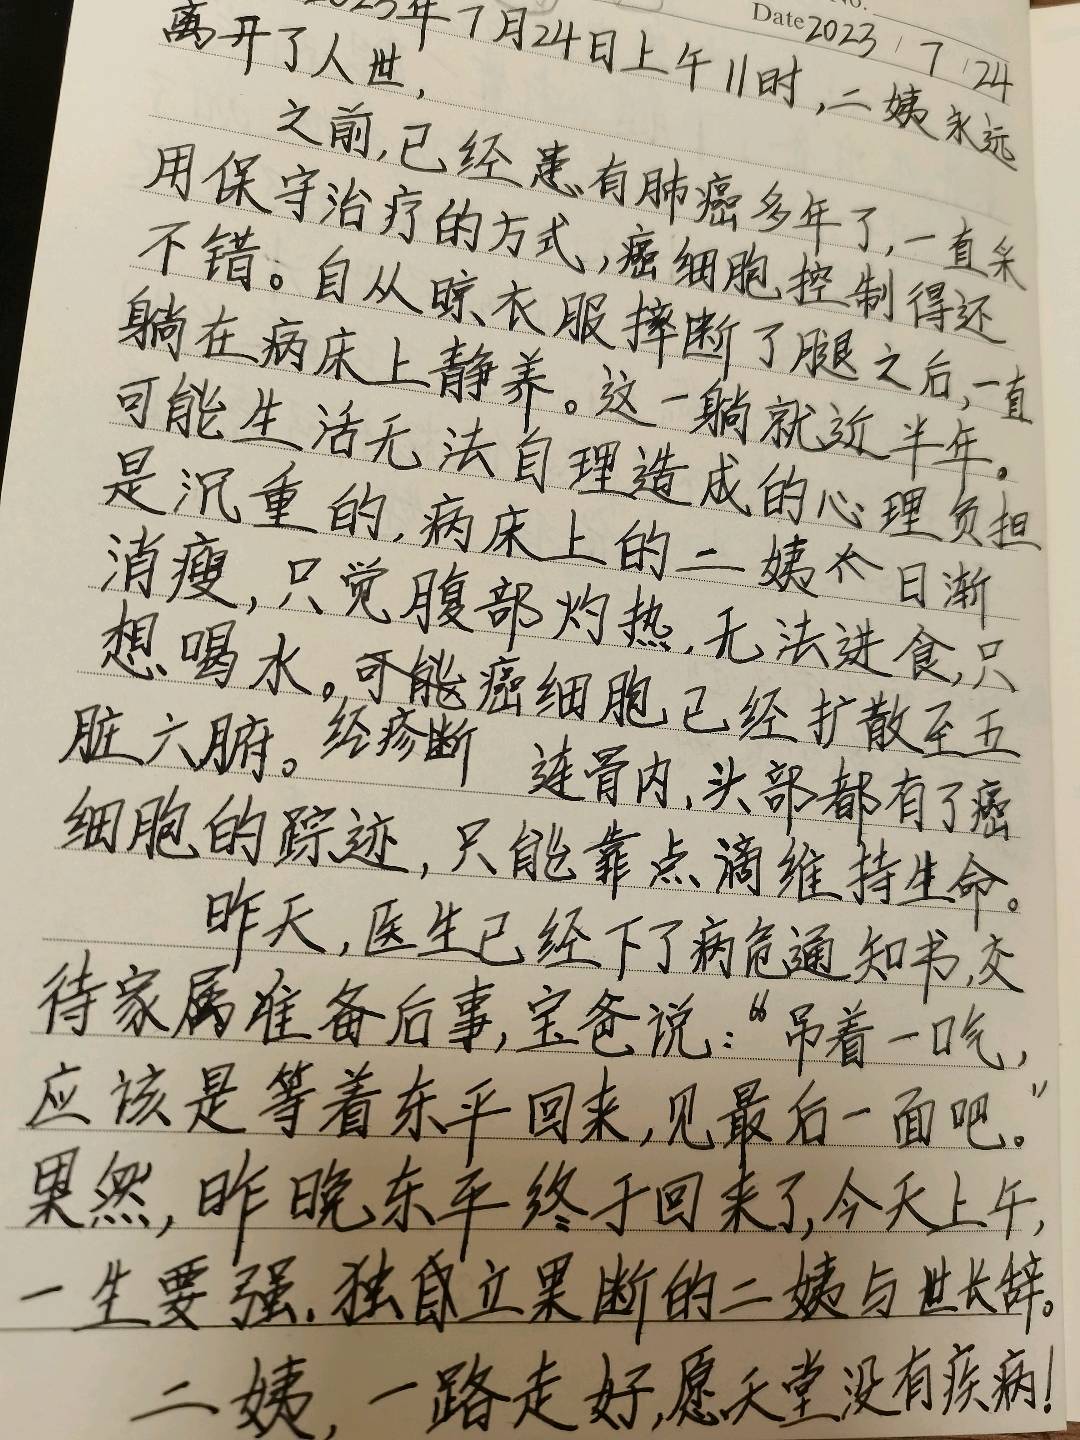 No.
Date 2023 / 7 / 24
2023年7月24日上午11时,二姨永远
离开了人世,
之前,已经患有肺癌多年了,一直采
用保守治疗的方式,癌细胞控制得还
不错。自从晾衣服摔断了腿之后,一直
躺在病床上静养。这一躺就近半年。
可能生活无法自理造成的心理负担
是沉重的,病床上的二姨 日渐
消瘦,只觉腹部灼热,无法进食,只
想喝水。可能癌细胞已经扩散至五
脏六腑。经疹断 连骨内,头部都有了癌
细胞的踪迹,只能靠点滴维持生命。
昨天,医生已经下了病危通知书,交
待家属准备后事,宝爸说:“吊着一口气,
应该是等着东平回来,见最后一面吧。”
果然,昨晚东平终于回来了,今天上午,
一生要强.独立果断的二姨与世长辞。
二姨,一路走好,愿天堂没有疾病!